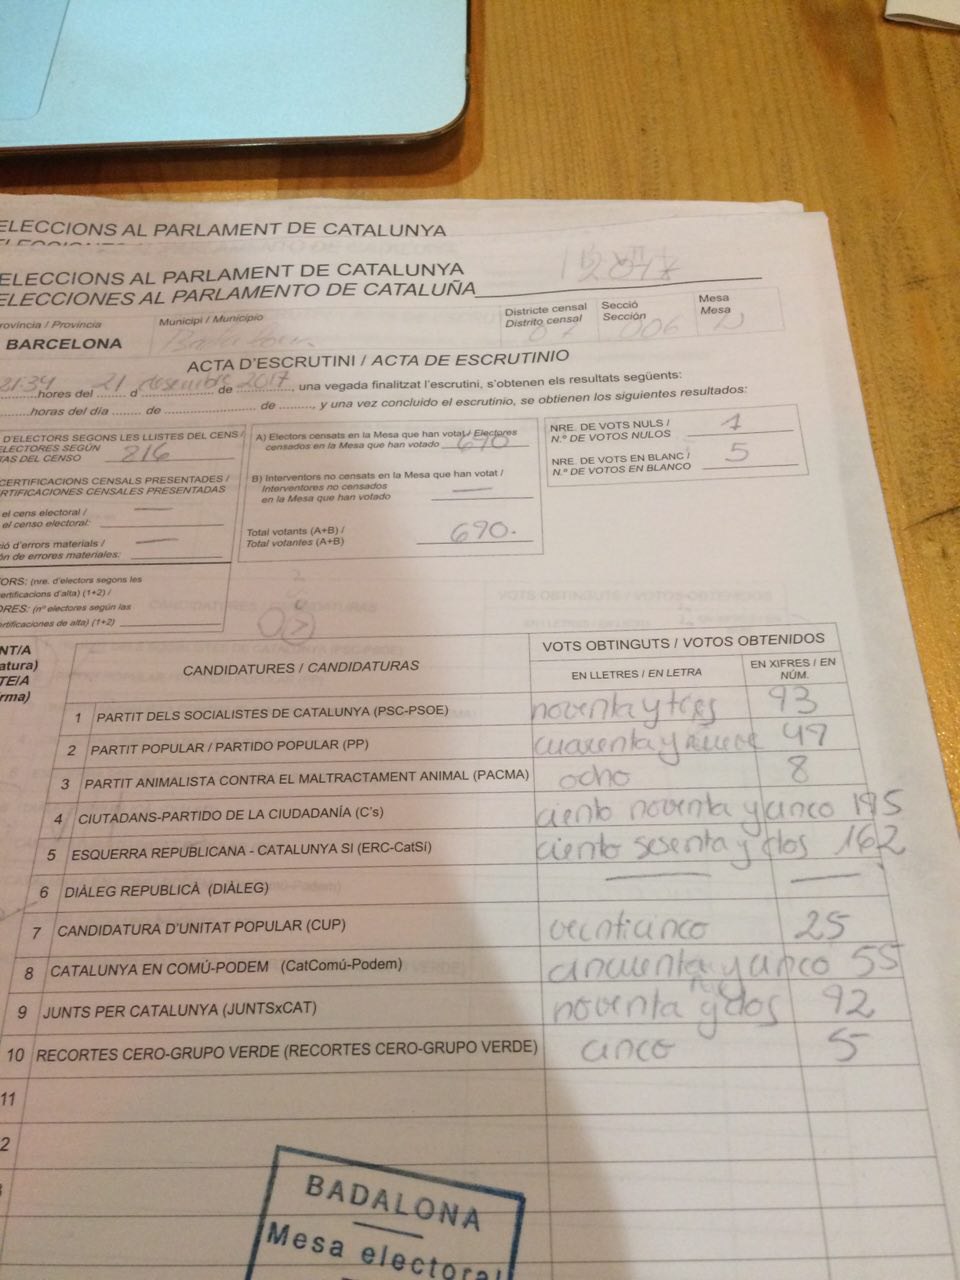 ELECCIONS AL PARLAMENT DE CATALUNYA
ELECCIONS AL PARLAMENT DE CATALUNYA
ELECCIONES AL PARLAMENTO DE CATALUÑA
rovíncia / Provincia
BARCELONA
Municipi / Municipio
Badalona
Districte censal
Distrito censal
Secció
Sección
006
Mesa
Mesa
ACTA D'ESCRUTINI / ACTA DE ESCRUTINIO
21:34 hores del 21 d desembre de 2017, una vegada finalitzat l'escrutini, s'obtenen els resultats següents:
horas del día de de , y una vez concluido el escrutinio, se obtienen los siguientes resultados:
D'ELECTORS SEGONS LES LLISTES DEL CENS /
ELECTORES SEGÚN
TAS DEL CENSO 816
CERTIFICACIONS CENSALS PRESENTADES /
RTIFICACIONES CENSALES PRESENTADAS
el cens electoral /
el censo electoral:
ció d'errors materials /
ón de errores materiales:
TORS: (nre. d'electors segons les
certificacions d'alta) (1+2) /
ORES: (nº electores según las
certificaciones de alta) (1+2)
A) Electors censats en la Mesa que han votat / Electores
censados en la Mesa que han votado 690
B) Interventors no censats en la Mesa que han votat /
Interventores no censados
en la Mesa que han votado
Total votants (A+B) /
Total votantes (A+B) 690.
NRE. DE VOTS NULS /
N.º DE VOTOS NULOS 1
NRE. DE VOTS EN BLANC /
N.º DE VOTOS EN BLANCO 5
NT/A
atura)
TE/A
rma)
CANDIDATURES / CANDIDATURAS
VOTS OBTINGUTS / VOTOS OBTENIDOS
EN LLETRES / EN LETRA
EN XIFRES / EN NÚM.
1 PARTIT DELS SOCIALISTES DE CATALUNYA (PSC-PSOE) noventa y tres 93
2 PARTIT POPULAR / PARTIDO POPULAR (PP) cuarenta y nueve 49
3 PARTIT ANIMALISTA CONTRA EL MALTRACTAMENT ANIMAL (PACMA) ocho 8
4 CIUTADANS-PARTIDO DE LA CIUDADANÍA (C's) ciento noventa y cinco 195
5 ESQUERRA REPUBLICANA - CATALUNYA SÍ (ERC-CatSí) ciento sesenta y dos 162
6 DIÀLEG REPUBLICÀ (DIÀLEG)
7 CANDIDATURA D'UNITAT POPULAR (CUP) veinticinco 25
8 CATALUNYA EN COMÚ-PODEM (CatComú-Podem) cincuenta y cinco 55
9 JUNTS PER CATALUNYA (JUNTSxCAT) noventa y dos 92
10 RECORTES CERO-GRUPO VERDE (RECORTES CERO-GRUPO VERDE) cinco 5
11
2
BADALONA
Mesa electoral